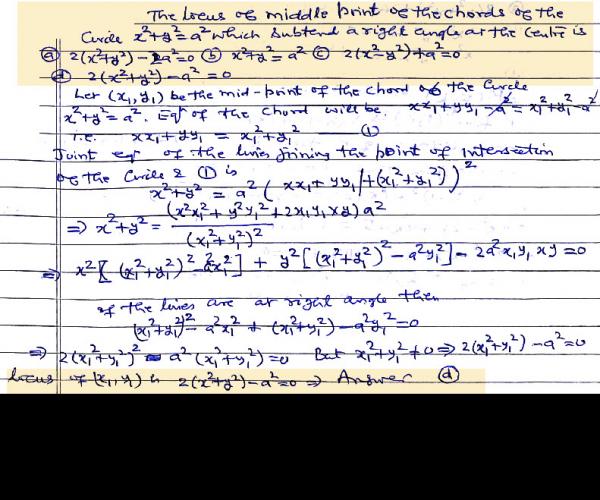 The locus of middle point of the chords of the
Circle x²+y²=a² which subtend a right angle at the centre is
(a) 2(x²+y²)-2a²=0 (b) x²+y²=a² (c) 2(x²-y²)+a²=0
(d) 2(x²+y²)-a²=0
Let (x₁,y₁) be the mid-point of the chord of the Circle
x²+y²=a². Eqⁿ of the chord will be xx₁+yy₁-a²=x₁²+y₁²-a²
i.e. xx₁+yy₁ = x₁²+y₁² — (1)
Joint eqⁿ of the lines joining the point of intersection
of the Circle & (1) is
x²+y² = a²(xx₁+yy₁/(x₁²+y₁²))²
⇒ x²+y² = (x²x₁²+y²y₁²+2x₁y₁xy)a²/(x₁²+y₁²)²
⇒ x²[(x₁²+y₁²)²-a²x₁²] + y²[(x₁²+y₁²)²-a²y₁²]-2a²x₁y₁xy=0
If the lines are at right angle then
(x₁²+y₁²)²-a²x₁²+(x₁²+y₁²)-a²y₁²=0
⇒ 2(x₁²+y₁²)²-a²(x₁²+y₁²)=0 But x₁²+y₁²≠0⇒2(x₁²+y₁²)-a²=0
locus of (x₁,y₁) is 2(x²+y²)-a²=0 ⇒ Answer (d)